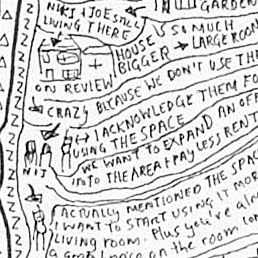 GARDEN
NIKI & JOE STILL
LIVING THERE
SO MUCH
LARGE ROOM
HOUSE
BIGGER
+
ON REVIEW
CRAZY BECAUSE WE DON'T USE THE
I ACKNOWLEDGE THEM FO
USING THE SPACE
WE WANT TO EXPAND AN OFF
INTO THE AREA & PAY LESS RENT
NIJ
I ACTUALLY MENTIONED THE SPAC
I WANT TO START USING IT MOR
LIVING ROOM. Plus you're al
on the room